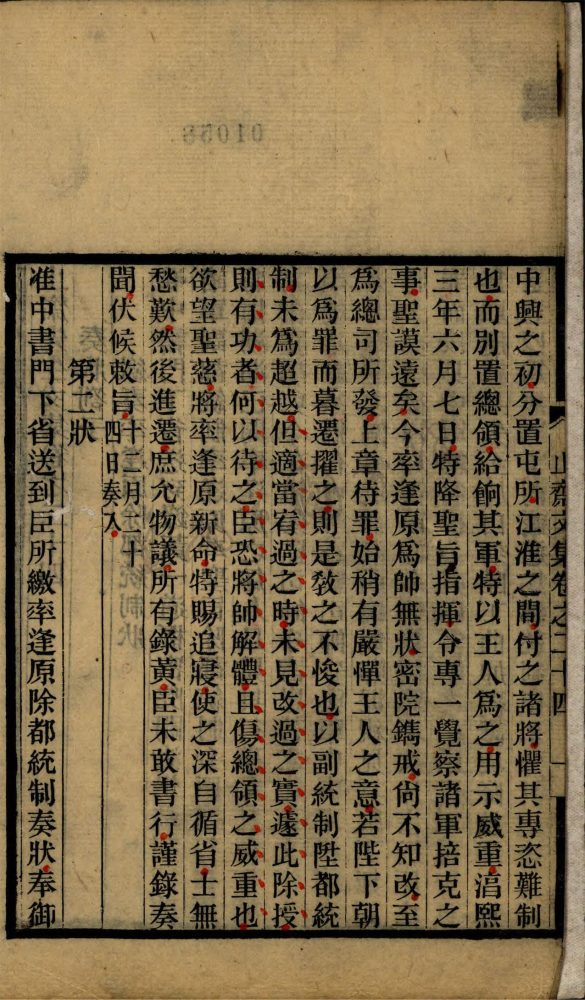 中興之初分置屯所江淮之間付之諸將懼其專恣難制
也而別置總領給餉其軍特以王人爲之用示威重湻熙
三年六月七日特降聖旨指揮令專一覺察諸軍掊克之
事聖謨遠矣今率逢原爲帥無狀密院鐫戒尙不知改至
爲總司所發上章待罪始稍有嚴憚王人之意若陛下朝
以爲罪而暮遷擢之則是敎之不悛也以副統制陞都統
制未爲超越但適當宥過之時未見改過之實遽此除授
則有功者何以待之臣恐將帥解體且傷總領之威重也
欲望聖慈將率逢原新命特賜追寢使之深自循省士無
愁歎然後進遷庶允物議所有錄黃臣未敢書行謹錄奏
聞伏候敕旨十二月二十
四日奏入
第二狀
准中書門下省送到臣所繳率逢原除都統制奏狀奉御
止齋文集卷之二十四
01058